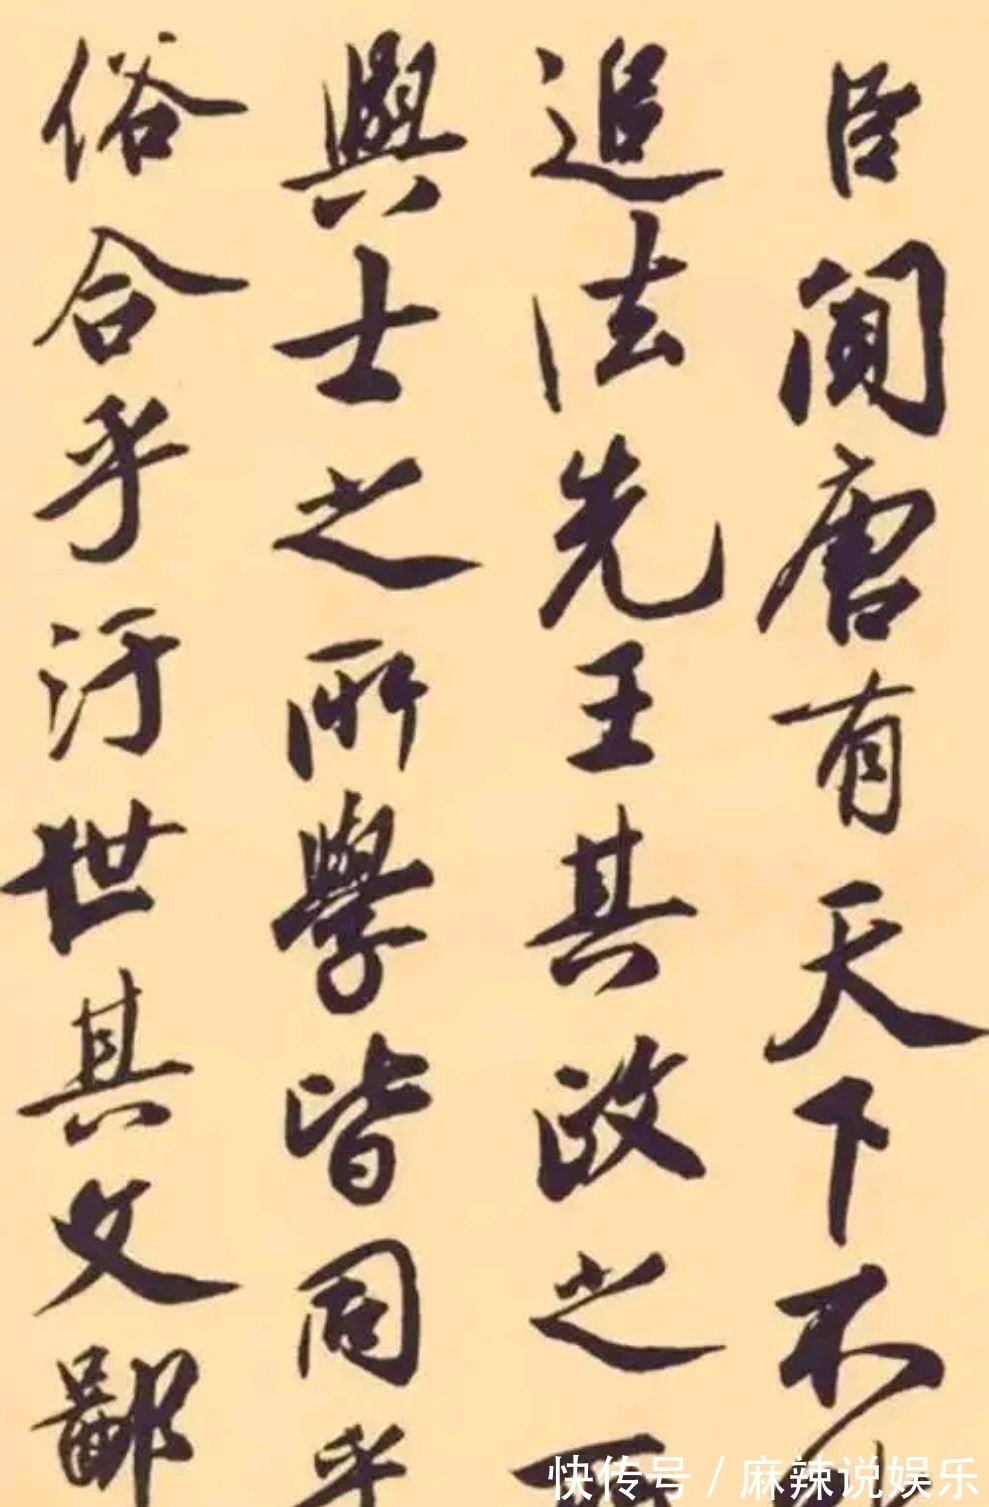 臣聞唐有天下不
追法先王其政之
興士之所學皆同乎
俗合乎汙世其文鄙
快传号/麻辣说娱乐